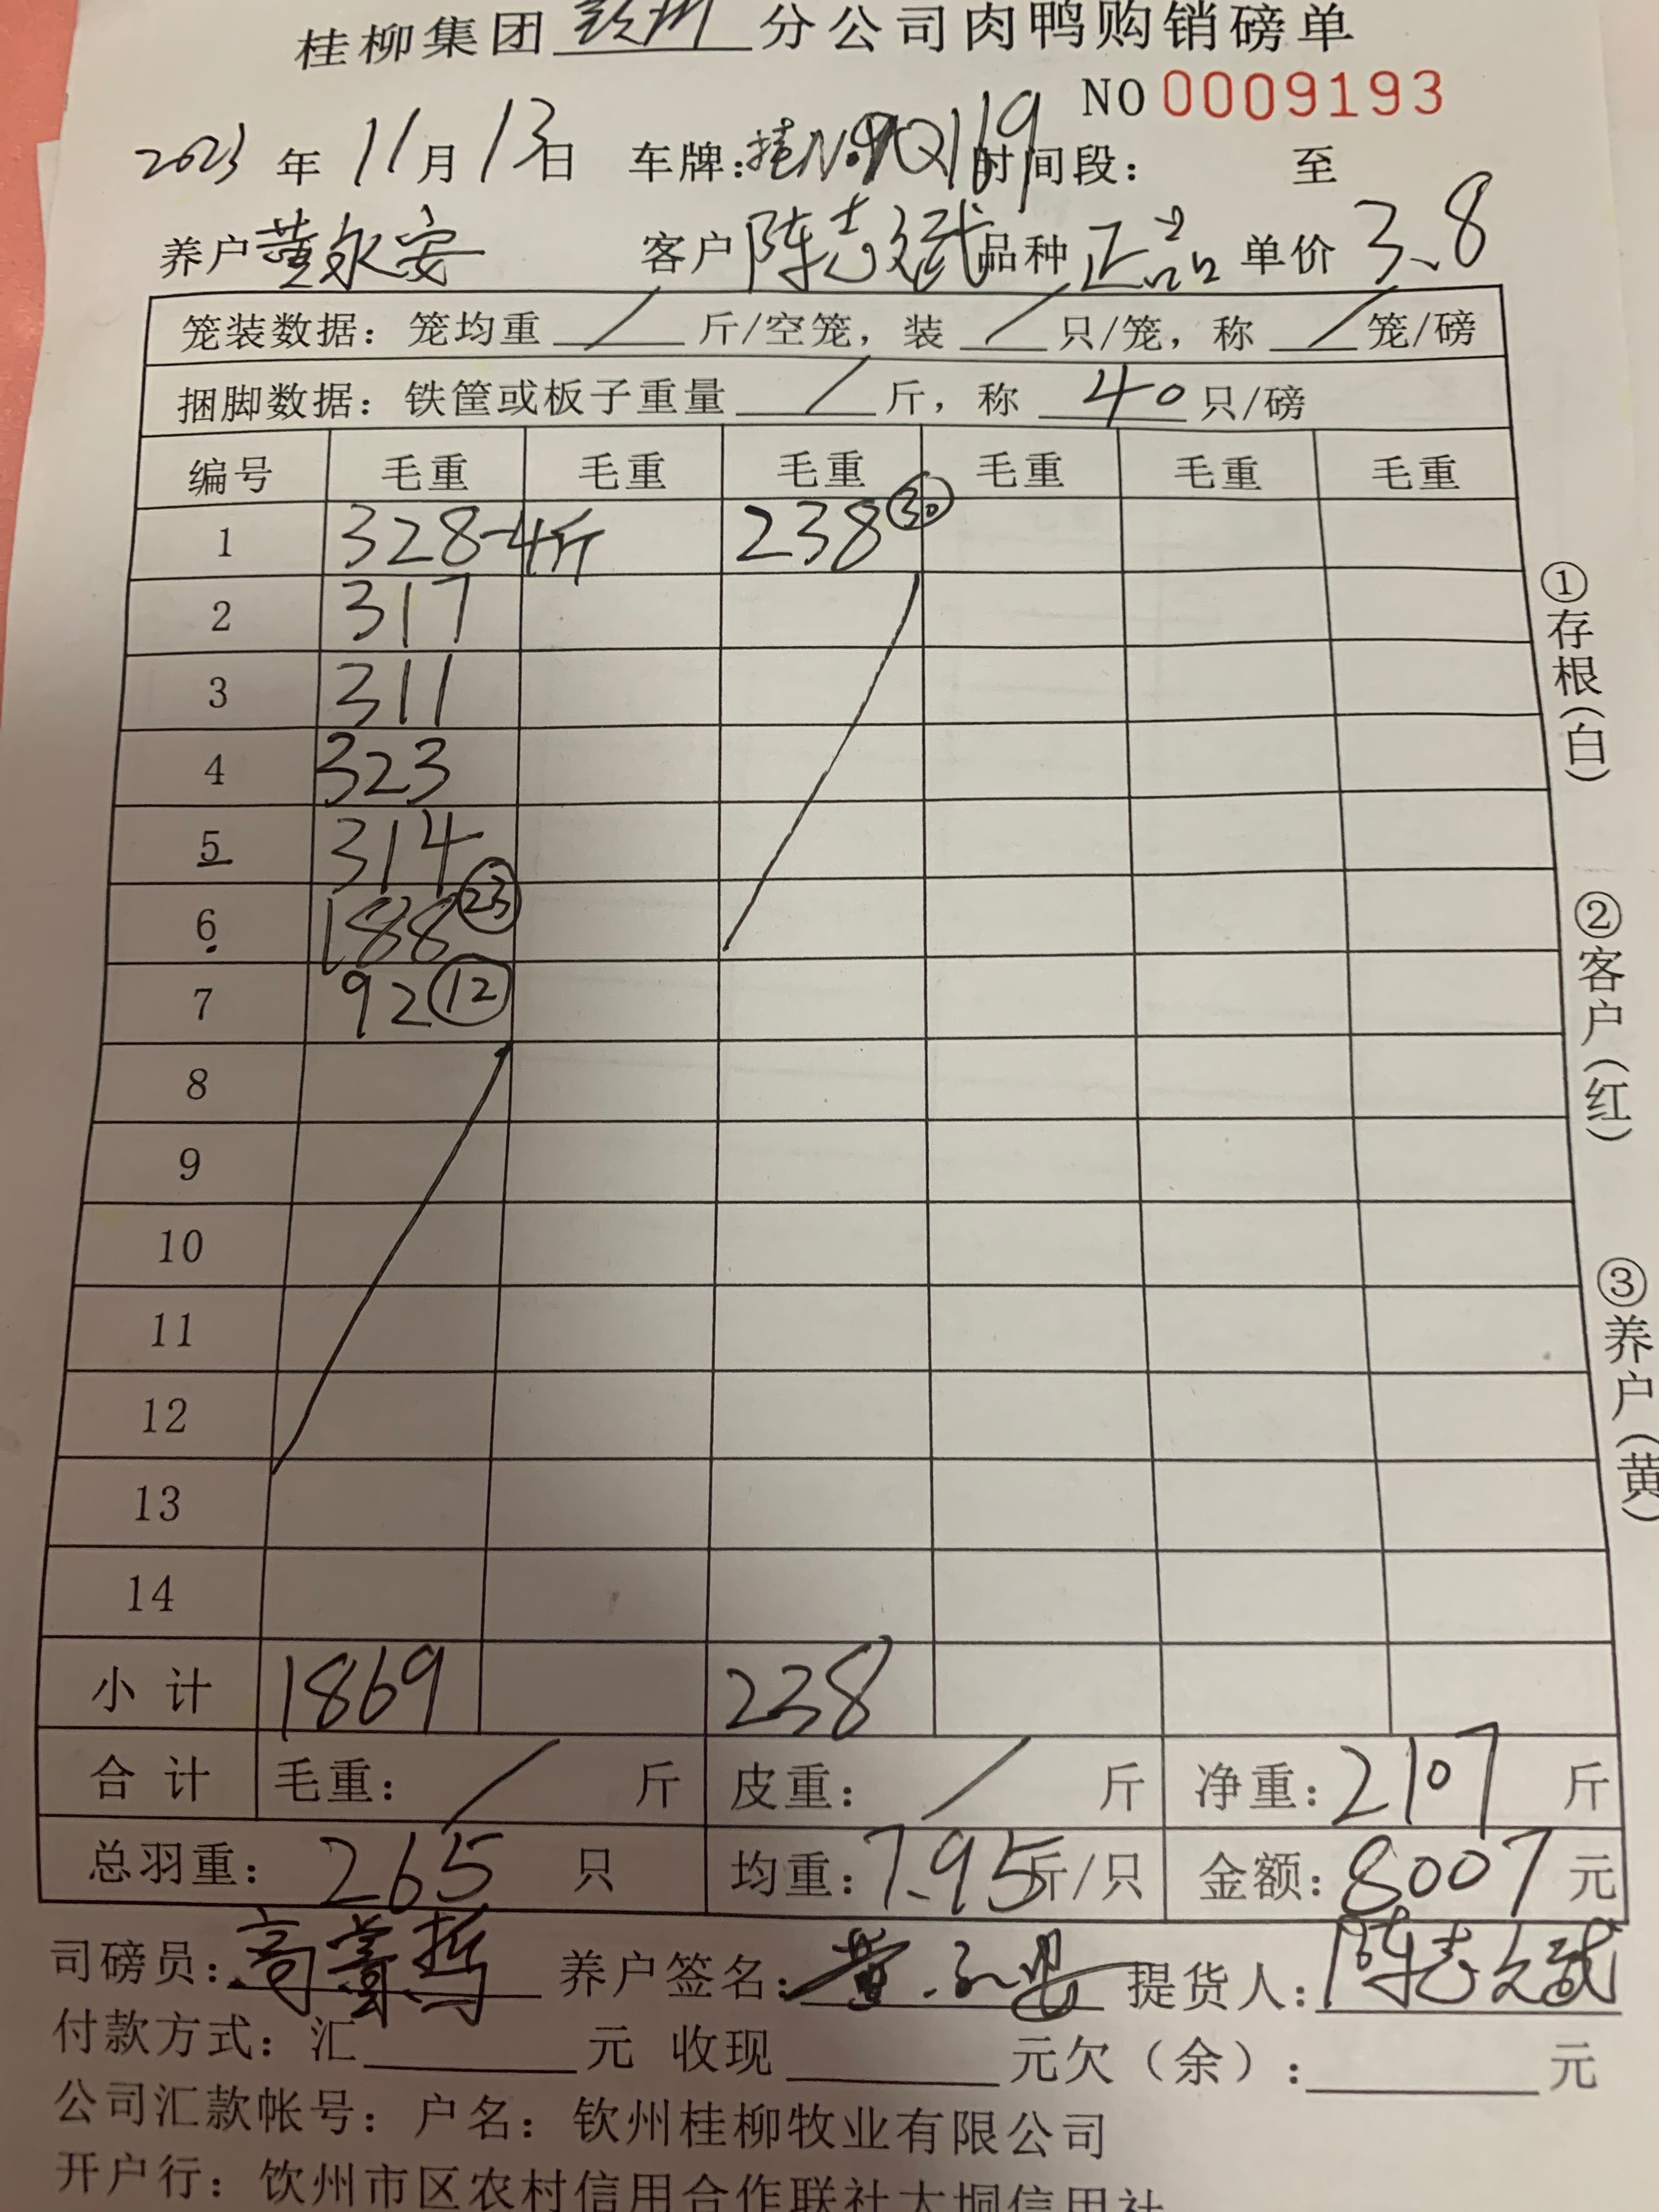 桂柳集团 钦州 分公司肉鸭购销磅单
NO 0009193
2023 年 11 月 13 日 车牌: 时间段: 至
养户 黄永安 客户 陈志斌 品种 正品 单价 3.8
笼装数据: 笼均重 / 斤/空笼, 装 / 只/笼, 称 / 笼/磅
捆脚数据: 铁筐或板子重量 / 斤, 称 40 只/磅
编号 毛重 毛重 毛重 毛重 毛重 毛重
1 328-4斤 238 ㉚
2 317
3 311
4 323
5 314
6 188 ㉓
7 92 ⑫
8
9
10
11
12
13
14
小计 1869 238
合计 毛重: / 斤 皮重: / 斤 净重: 2107 斤
总羽重: 265 只 均重: 7.95 斤/只 金额: 8007 元
司磅员: 养户签名: 提货人: 陈志斌
付款方式: 汇 元 收现 元欠(余): 元
公司汇款帐号: 户名: 钦州桂柳牧业有限公司
开户行: 钦州市区农村信用合作联社大垌信用社
①存根(白)
②客户(红)
③养户(黄)